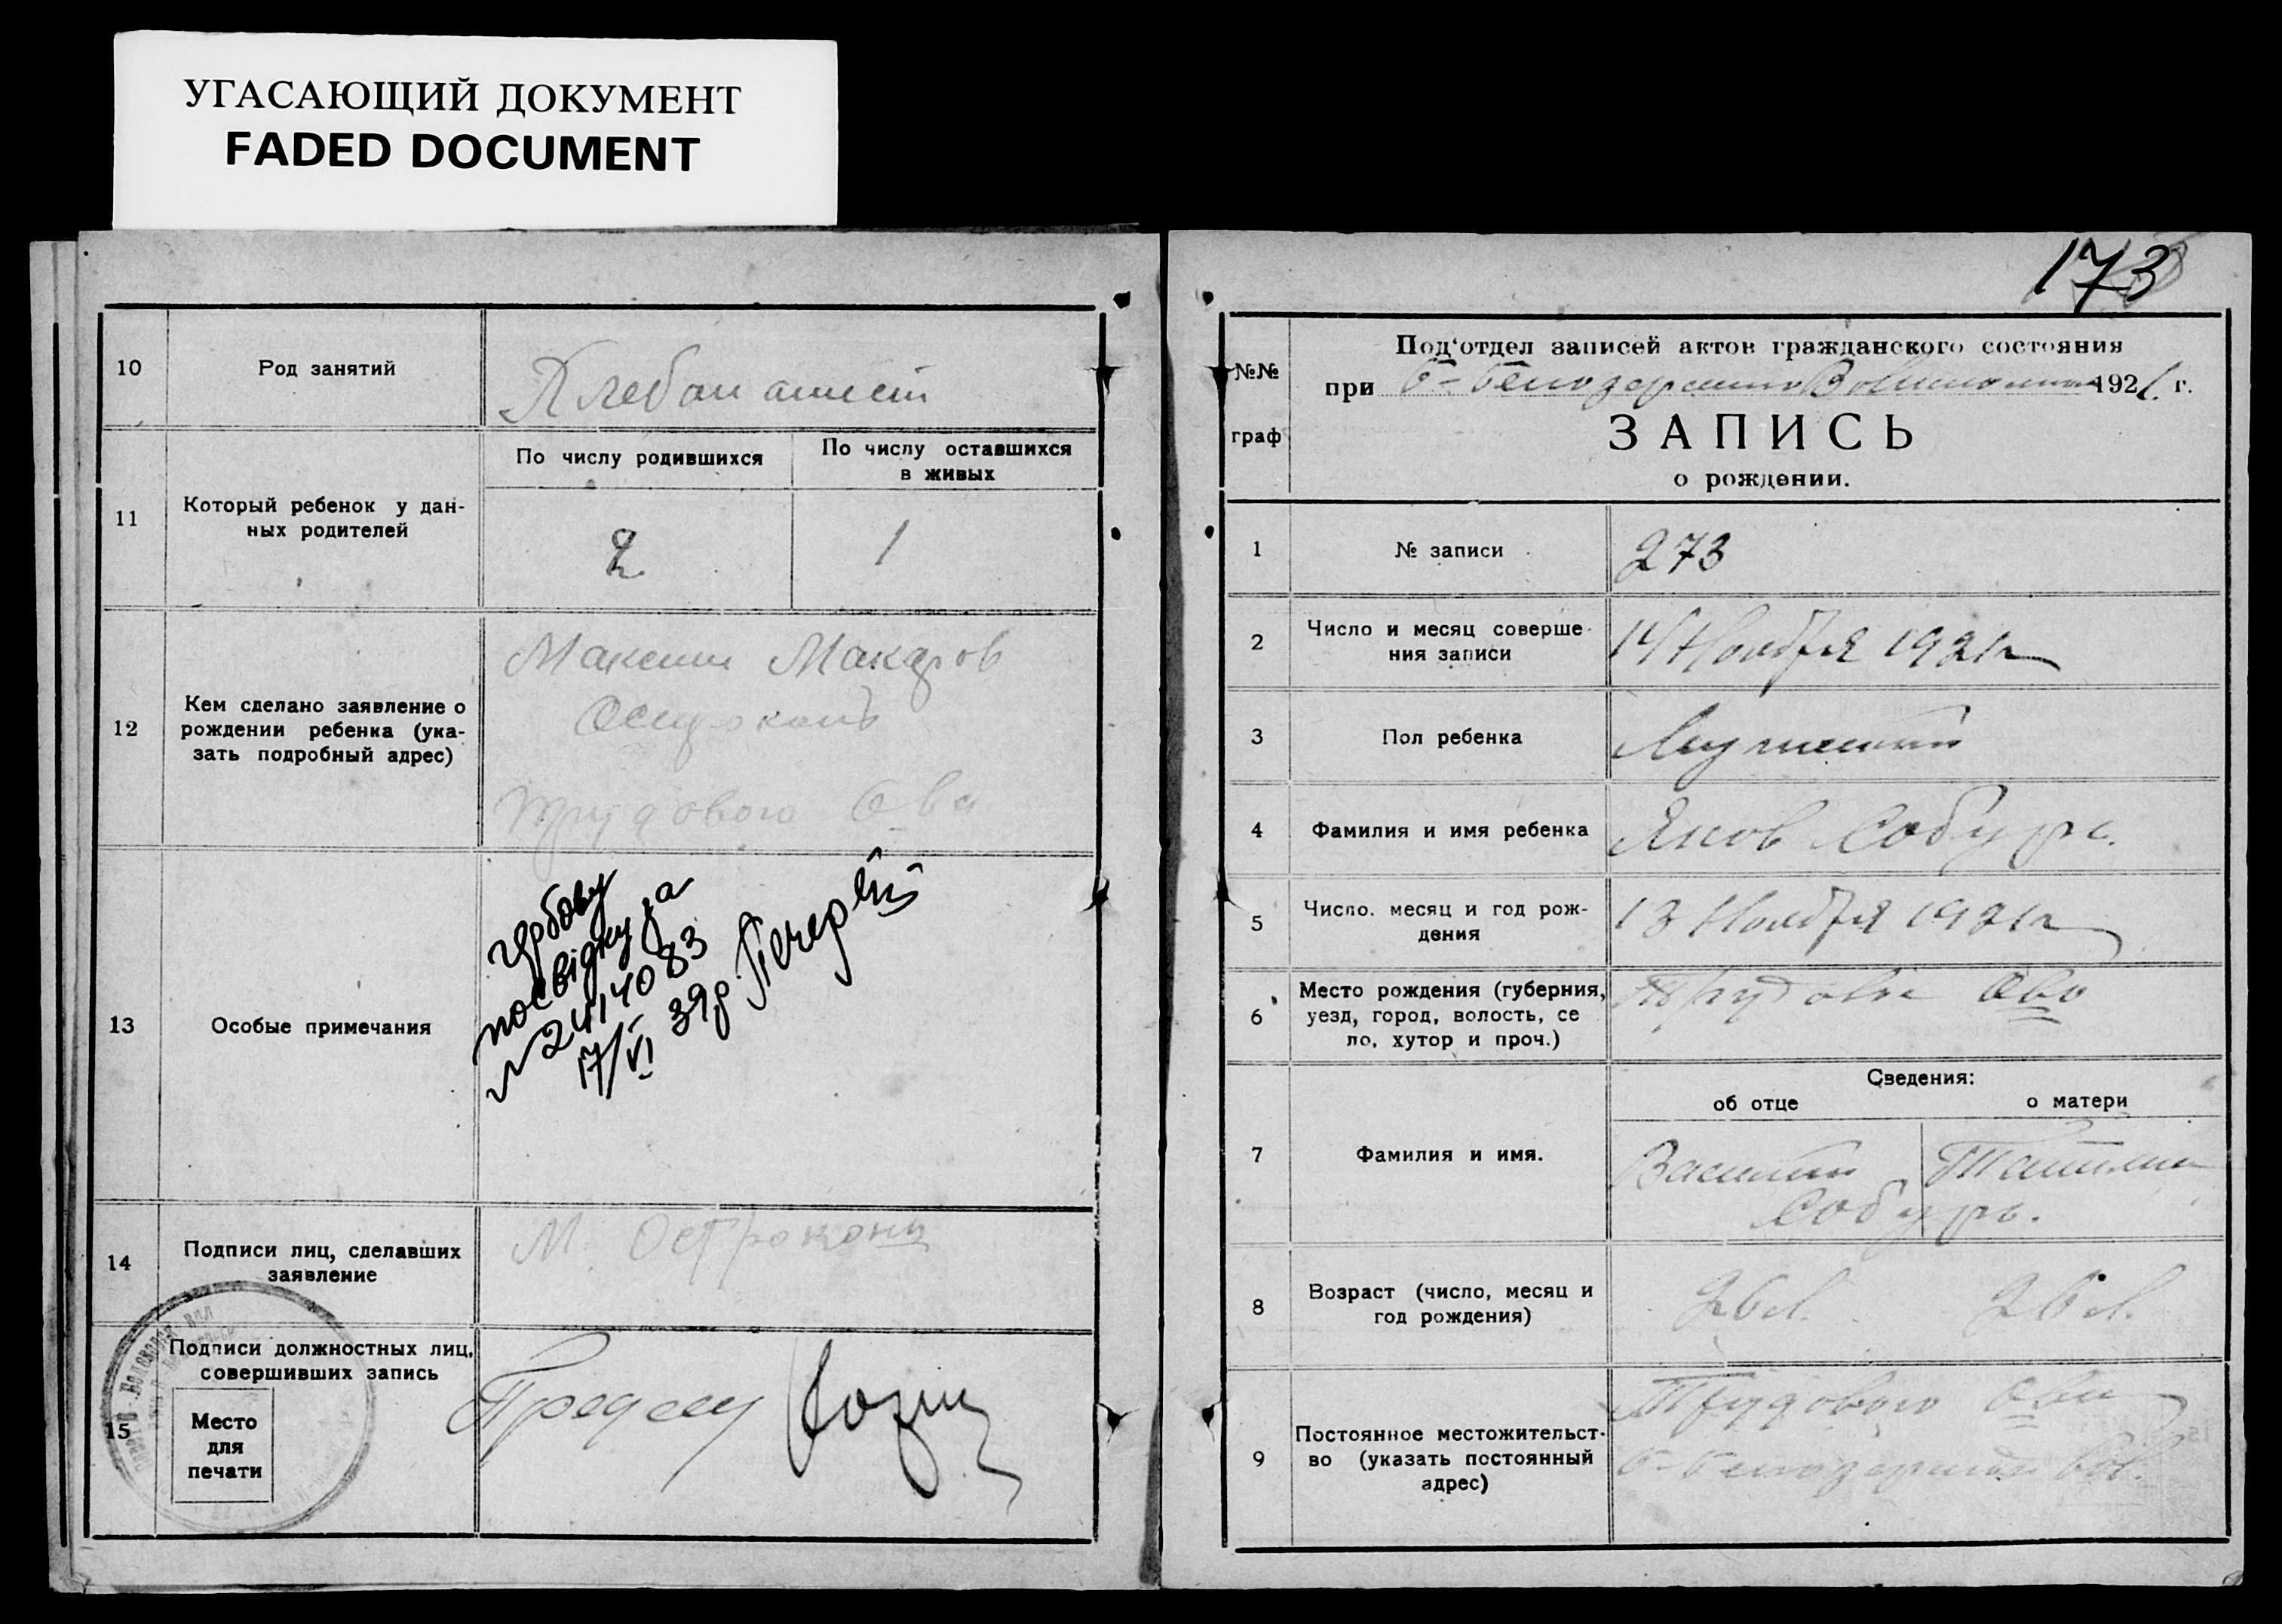 УГАСАЮЩИЙ ДОКУМЕНТ
FADED DOCUMENT
10
Род занятий
Хлебопашест
11
Который ребенок у дан-
ных родителей
По числу родившихся
2
По числу оставшихся
в живых
1
12
Кем сделано заявление о
рождении ребенка (ука-
зать подробный адрес)
Максим Макаров
Трудового О-ва
13
Особые примечания
гербову
посвідку за
№ 2414083
17/VI 39р
14
Подписи лиц, сделавших
заявление
М. Остроконь
15
Подписи должностных лиц,
совершивших запись
Место
для
печати
Предсему
173
№№
граф
Под'отдел записей актов гражданского состояния
при Б-Белозерском Волисполкоме 1921 г.
ЗАПИСЬ
о рождении.
1
№ записи
273
2
Число и месяц соверше-
ния записи
14 Ноября 1921 г
3
Пол ребенка
Мужеский
4
Фамилия и имя ребенка
Яков Собурь.
5
Число, месяц и год рож-
дения
13 Ноября 1921 г
6
Место рождения (губерния,
уезд, город, волость, се
ло, хутор и проч.)
Трудовое О-во
7
Фамилия и имя.
Сведения:
об отце
о матери
Василий
Татьяна
Собурь.
8
Возраст (число, месяц и
год рождения)
26 л.
26 л.
9
Постоянное местожительст-
во (указать постоянный
адрес)
Трудового О-ва
Б-Белозерской вол.